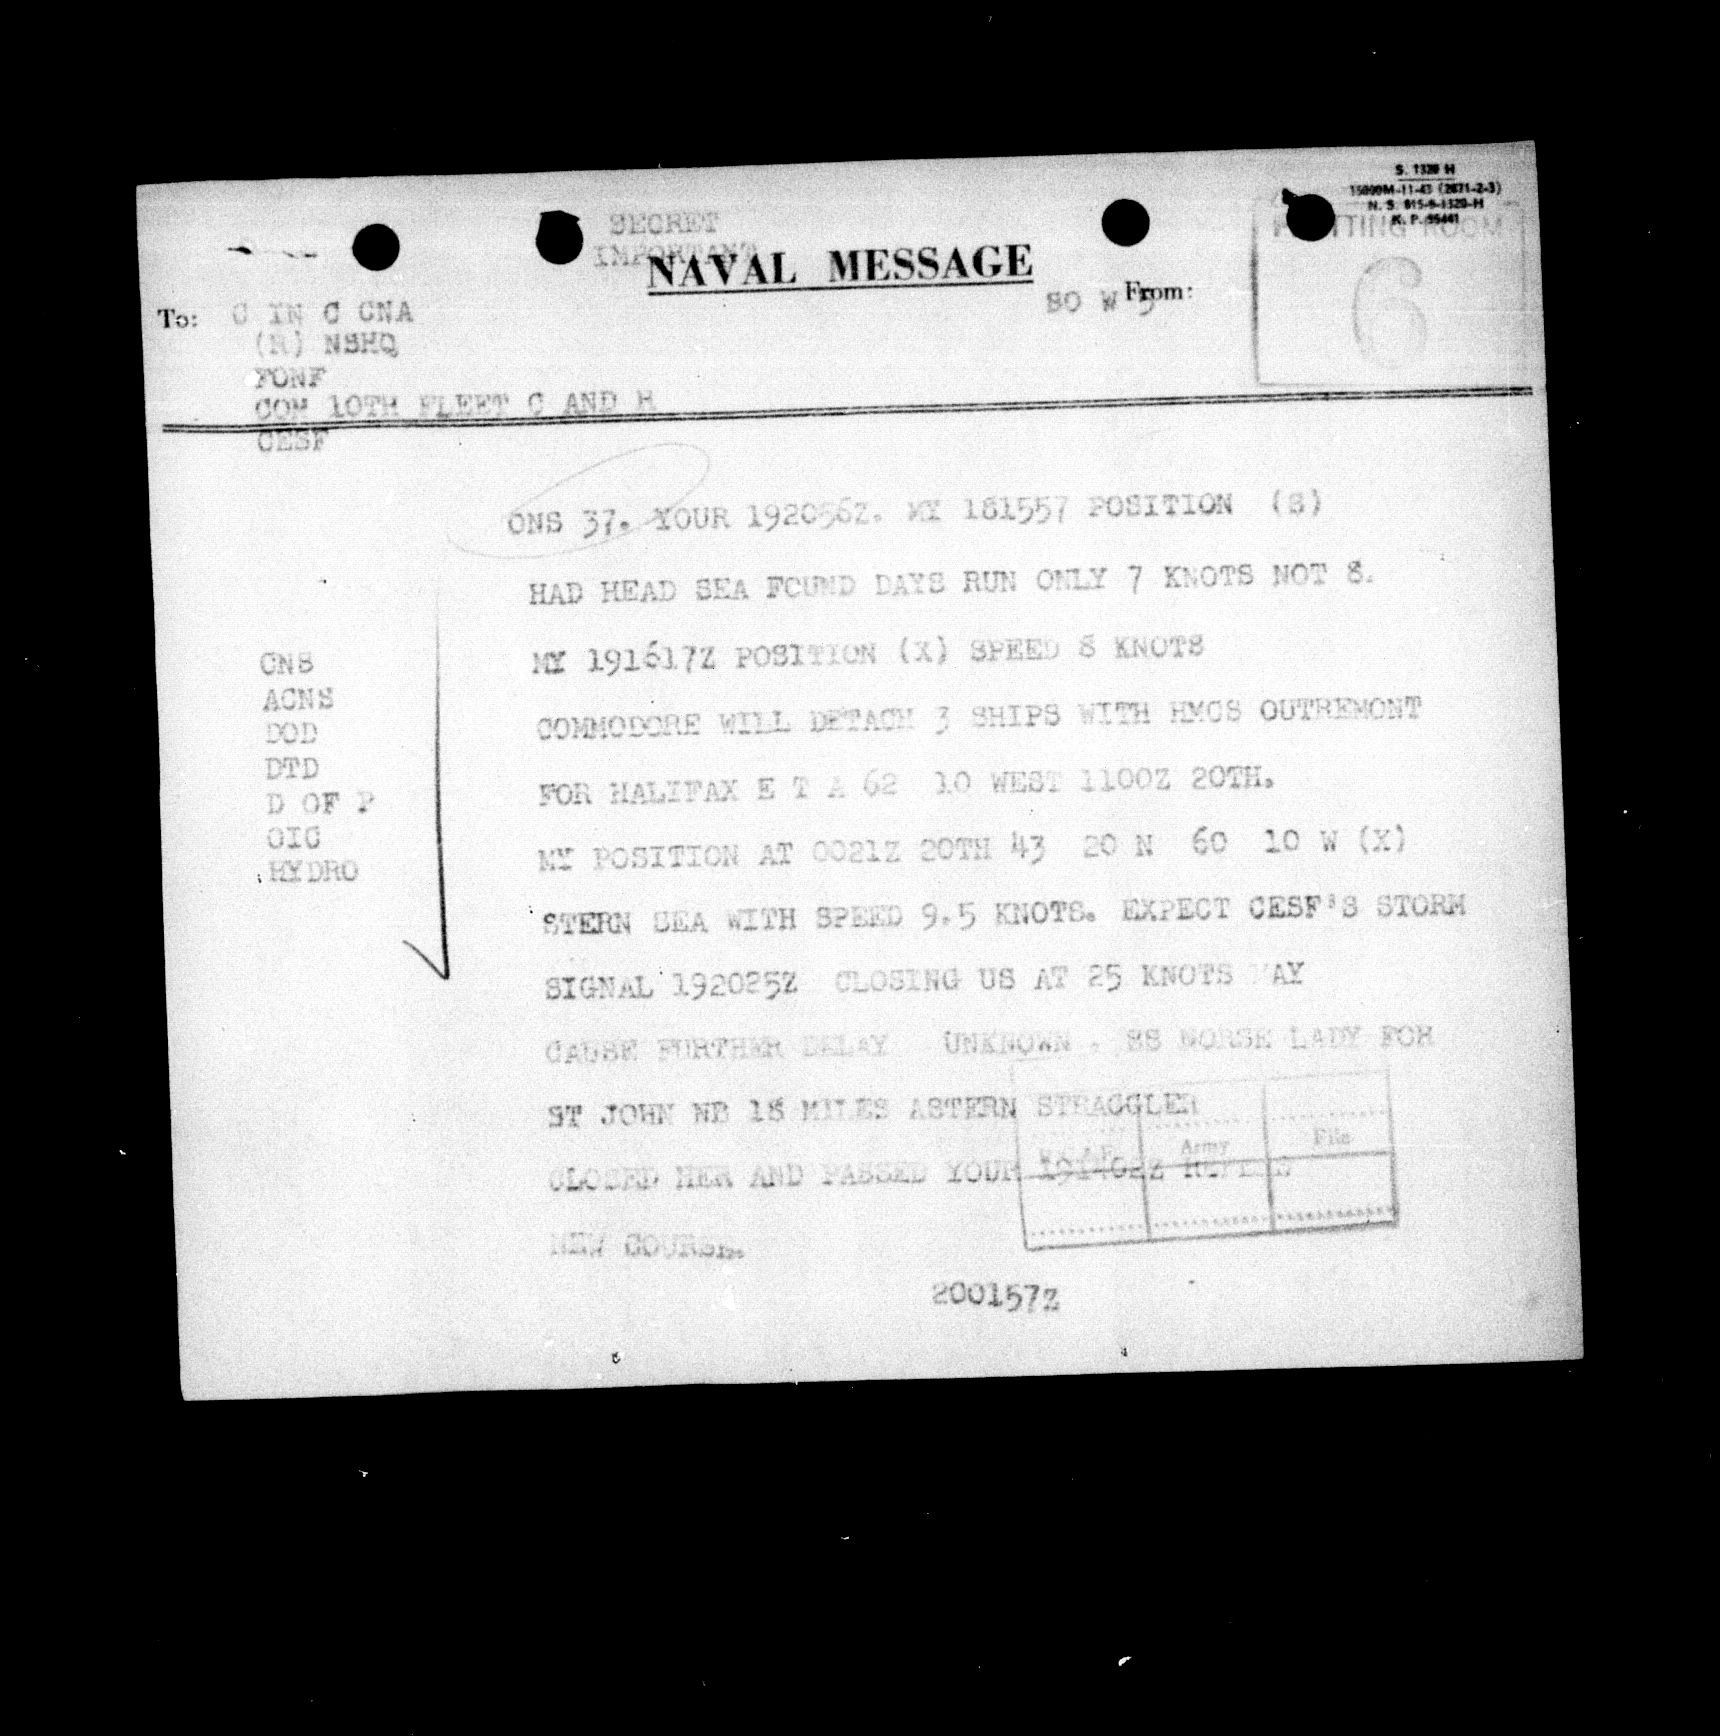 S. 1320 H
15000M-11-43 (2871-2-3)
N. S. 815-9-1320-H
K. P. 95441
PLOTTING ROOM
6
SECRET
IMPORTANT
NAVAL MESSAGE
To: C IN C CNA
From: SO W 5
(R) NSHQ
FONF
COM 10TH FLEET C AND R
CESF
ONS 37. YOUR 192056Z. MY 181557 POSITION (S)
HAD HEAD SEA FOUND DAYS RUN ONLY 7 KNOTS NOT 8.
MY 191617Z POSITION (X) SPEED 8 KNOTS
COMMODORE WILL DETACH 3 SHIPS WITH HMCS OUTREMONT
FOR HALIFAX E T A 62 10 WEST 1100Z 20TH.
MY POSITION AT 0021Z 20TH 43 20 N 60 10 W (X)
STERN SEA WITH SPEED 9.5 KNOTS. EXPECT CESF'S STORM
SIGNAL 192025Z CLOSING US AT 25 KNOTS MAY
CAUSE FURTHER DELAY UNKNOWN. SS NORSE LADY FOR
ST JOHN NB 18 MILES ASTERN STRAGGLER
CLOSED HER AND PASSED YOUR
NEW COURSE.
CNS
ACNS
DOD
DTD
D OF P
OIC
HYDRO
Army
File
200157Z